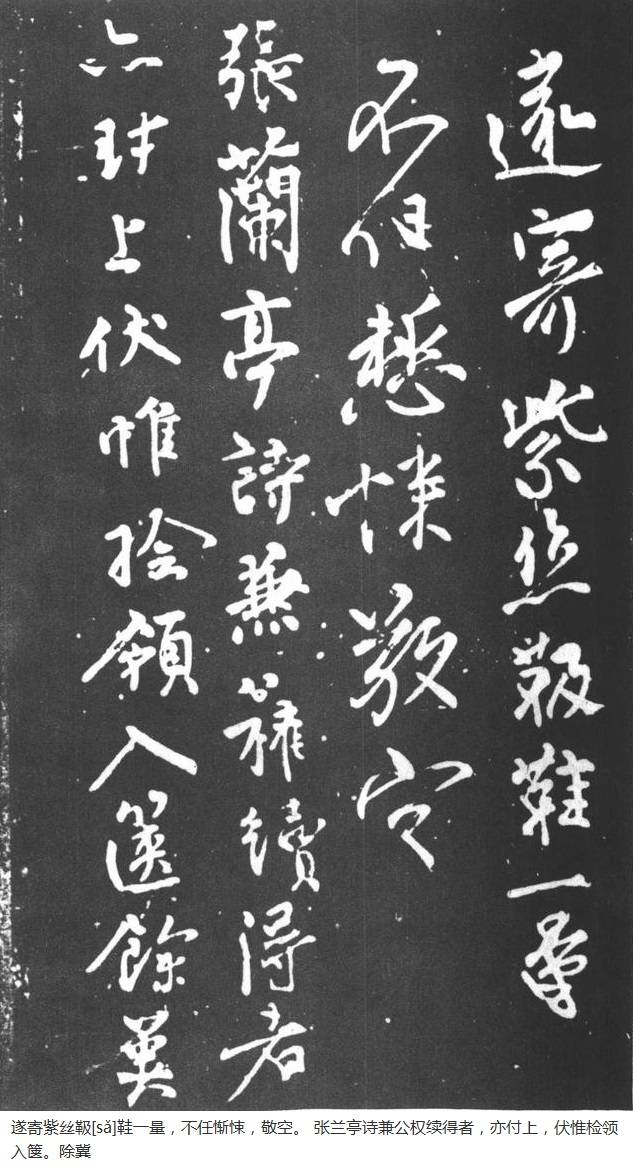 遂寄紫絲靸鞋一量
不任慙悚敬空
張蘭亭詩兼公權續得者
亦付上伏惟捡領入篋餘冀
遂寄紫丝靸[sǎ]鞋一量，不任惭悚，敬空。 张兰亭诗兼公权续得者，亦付上，伏惟检领
入箧。除冀